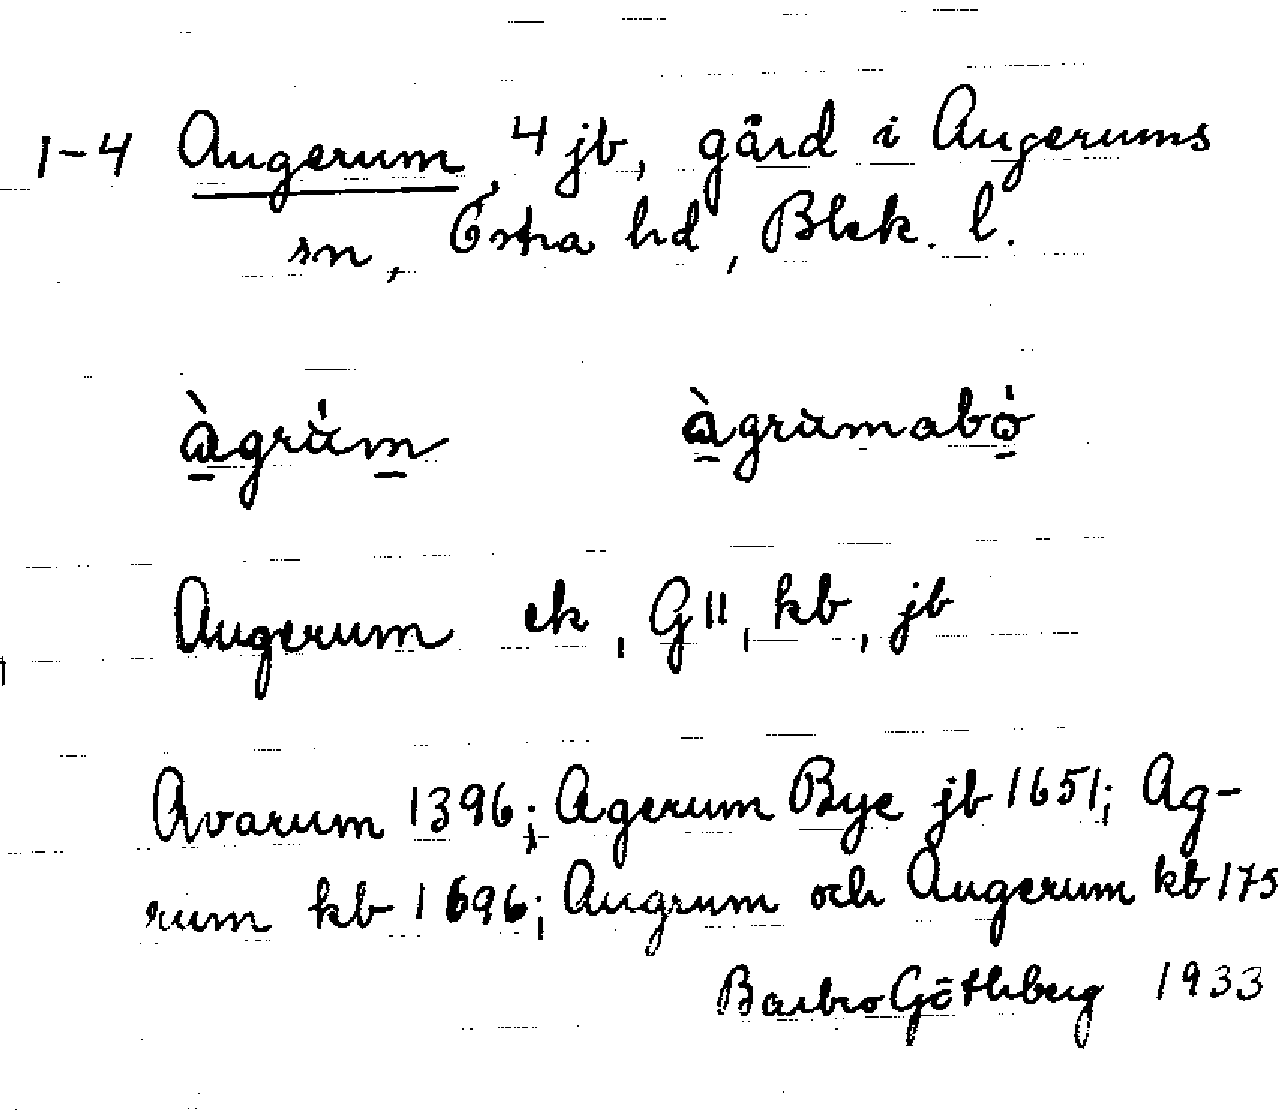 1-4 Augerum 4 jb, gård i Augerums
sn, Östra hd, Blek. l.
àgrum àgrumabo
Augerum ek, GII, kb, jb
Avarum 1396; Agerum Bye jb 1651; Ag-
rum kb 1696; Augrum och Augerum kb 175
Barbro Göthberg 1933